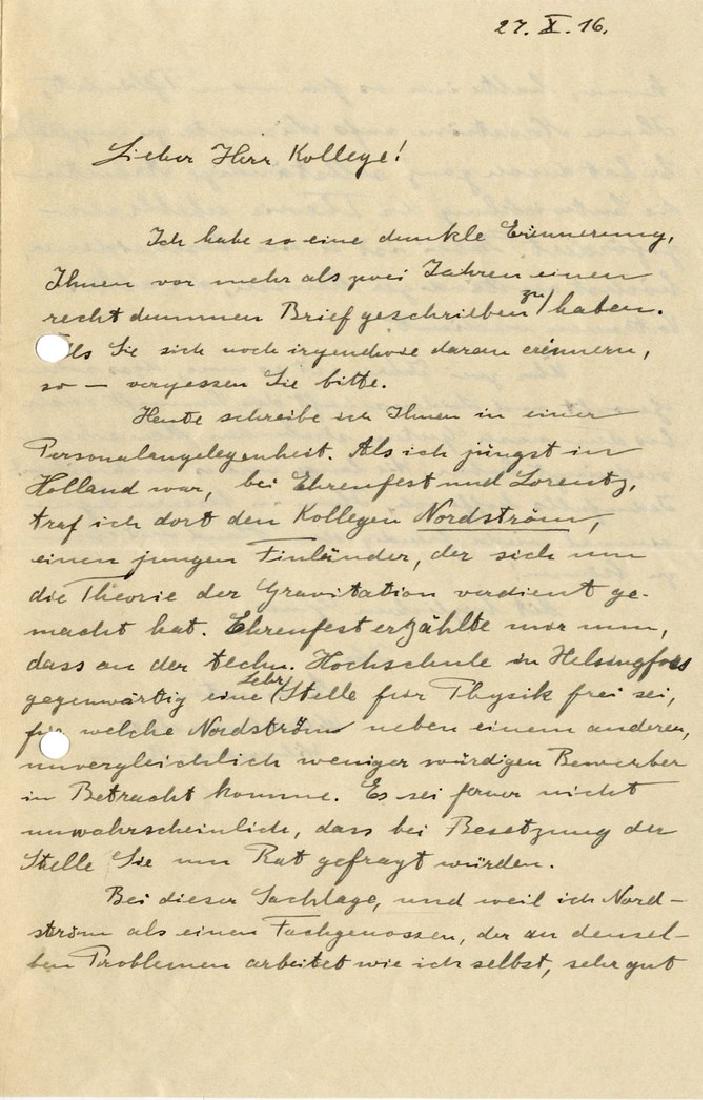 27. X. 16.
Lieber Herr Kollege!
Ich habe so eine dunkle Erinnerung,
Ihnen vor mehr als zwei Jahren einen
recht dummen Brief geschrieben zu haben.
lls Sie sich noch irgendwie daran erinnern,
so — vergessen Sie bitte.
Heute schreibe ich Ihnen in einer
Personalangelegenheit. Als ich jüngst in
Holland war, bei Ehrenfest und Lorentz,
traf ich dort den Kollegen Nordström,
einen jungen Finländer, der sich um
die Theorie der Gravitation verdient ge-
macht hat. Ehrenfest erzählte mir nun,
dass an der techn. Hochschule in Helsingfors
gegenwärtig eine Lehr Stelle für Physik frei sei,
für welche Nordström neben einem anderen,
unvergleichlich weniger würdigen Bewerber
in Betracht komme. Es sei ferner nicht
unwahrscheinlich, dass bei Besetzung der
Stelle Sie um Rat gefragt würden.
Bei dieser Sachlage, und weil ich Nord-
ström als einen Fachgenossen, der an densel-
ben Problemen arbeitet wie ich selbst, sehr gut